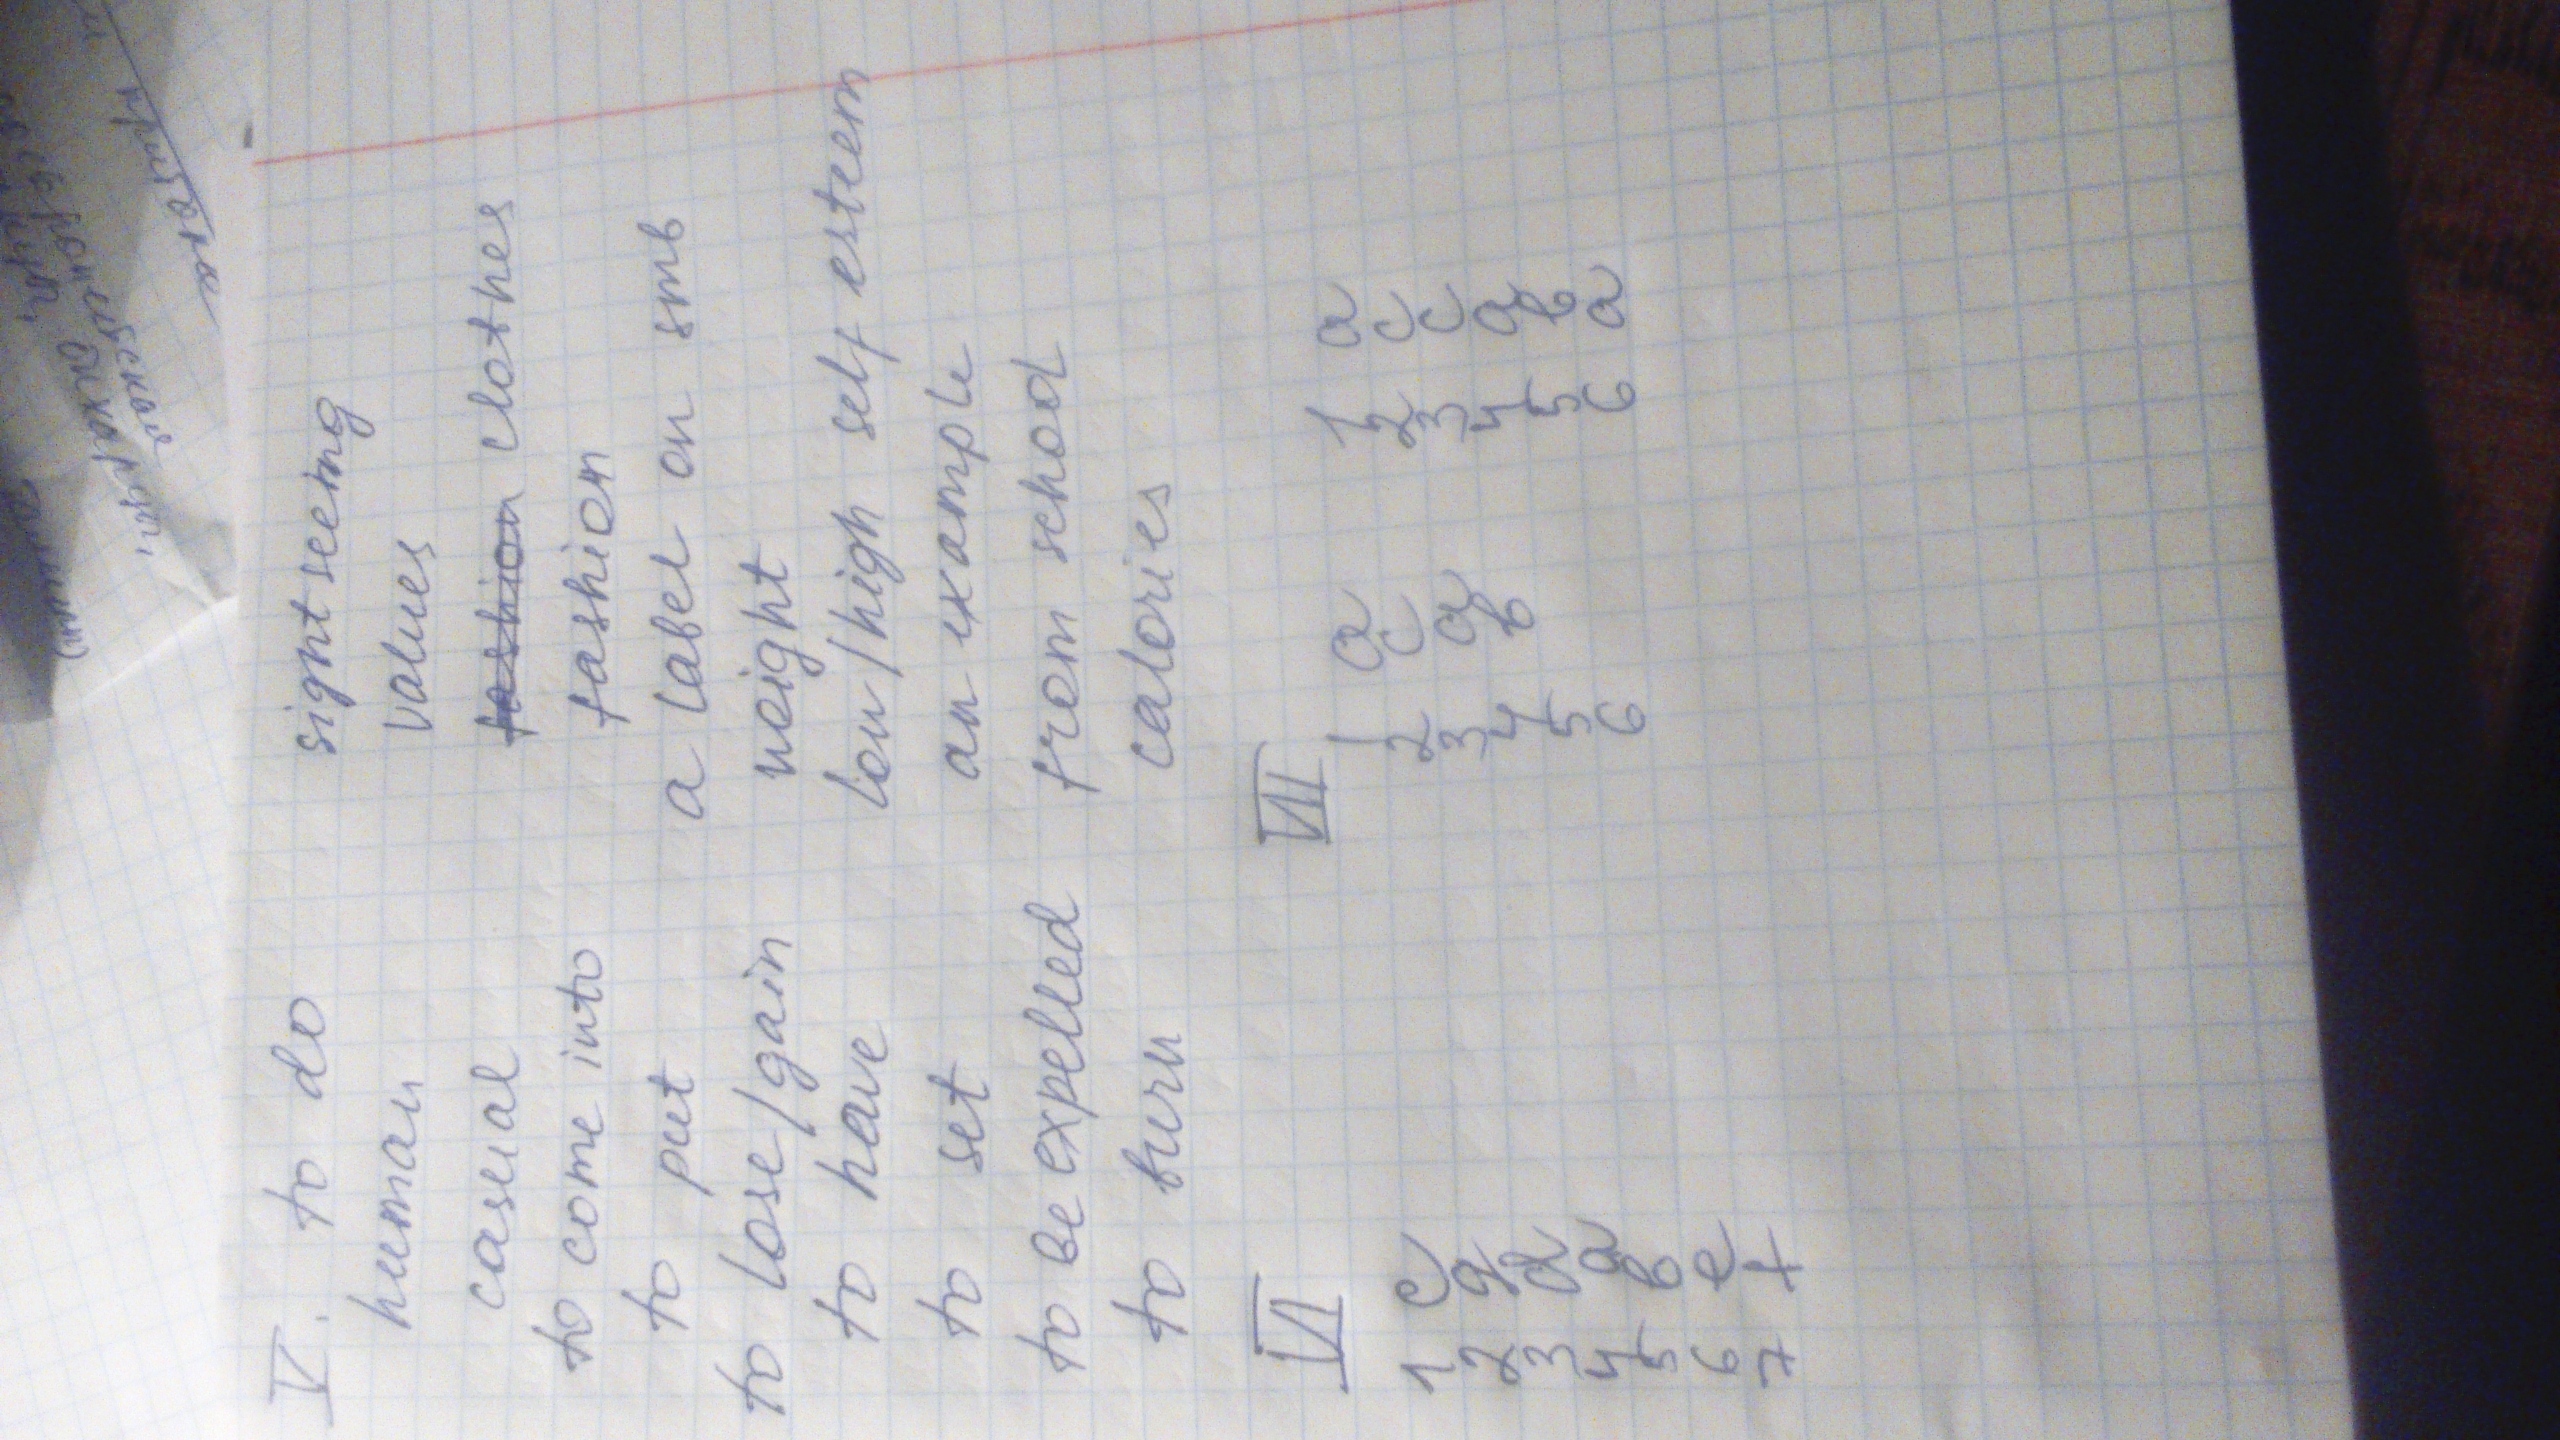 V. to do sightseeing
human values
casual fashion clothes
to come into fashion
to put a label on smb
to lose/gain weight
to have low/high self esteem
to set an example
to be expelled from school
to burn calories
VI VII
1 c 1 a 1 a
2 g 2 c 2 c
3 d 3 a 3 c
4 a 4 b 4 a
5 b 5 5 b
6 e 6 6 a
7 f